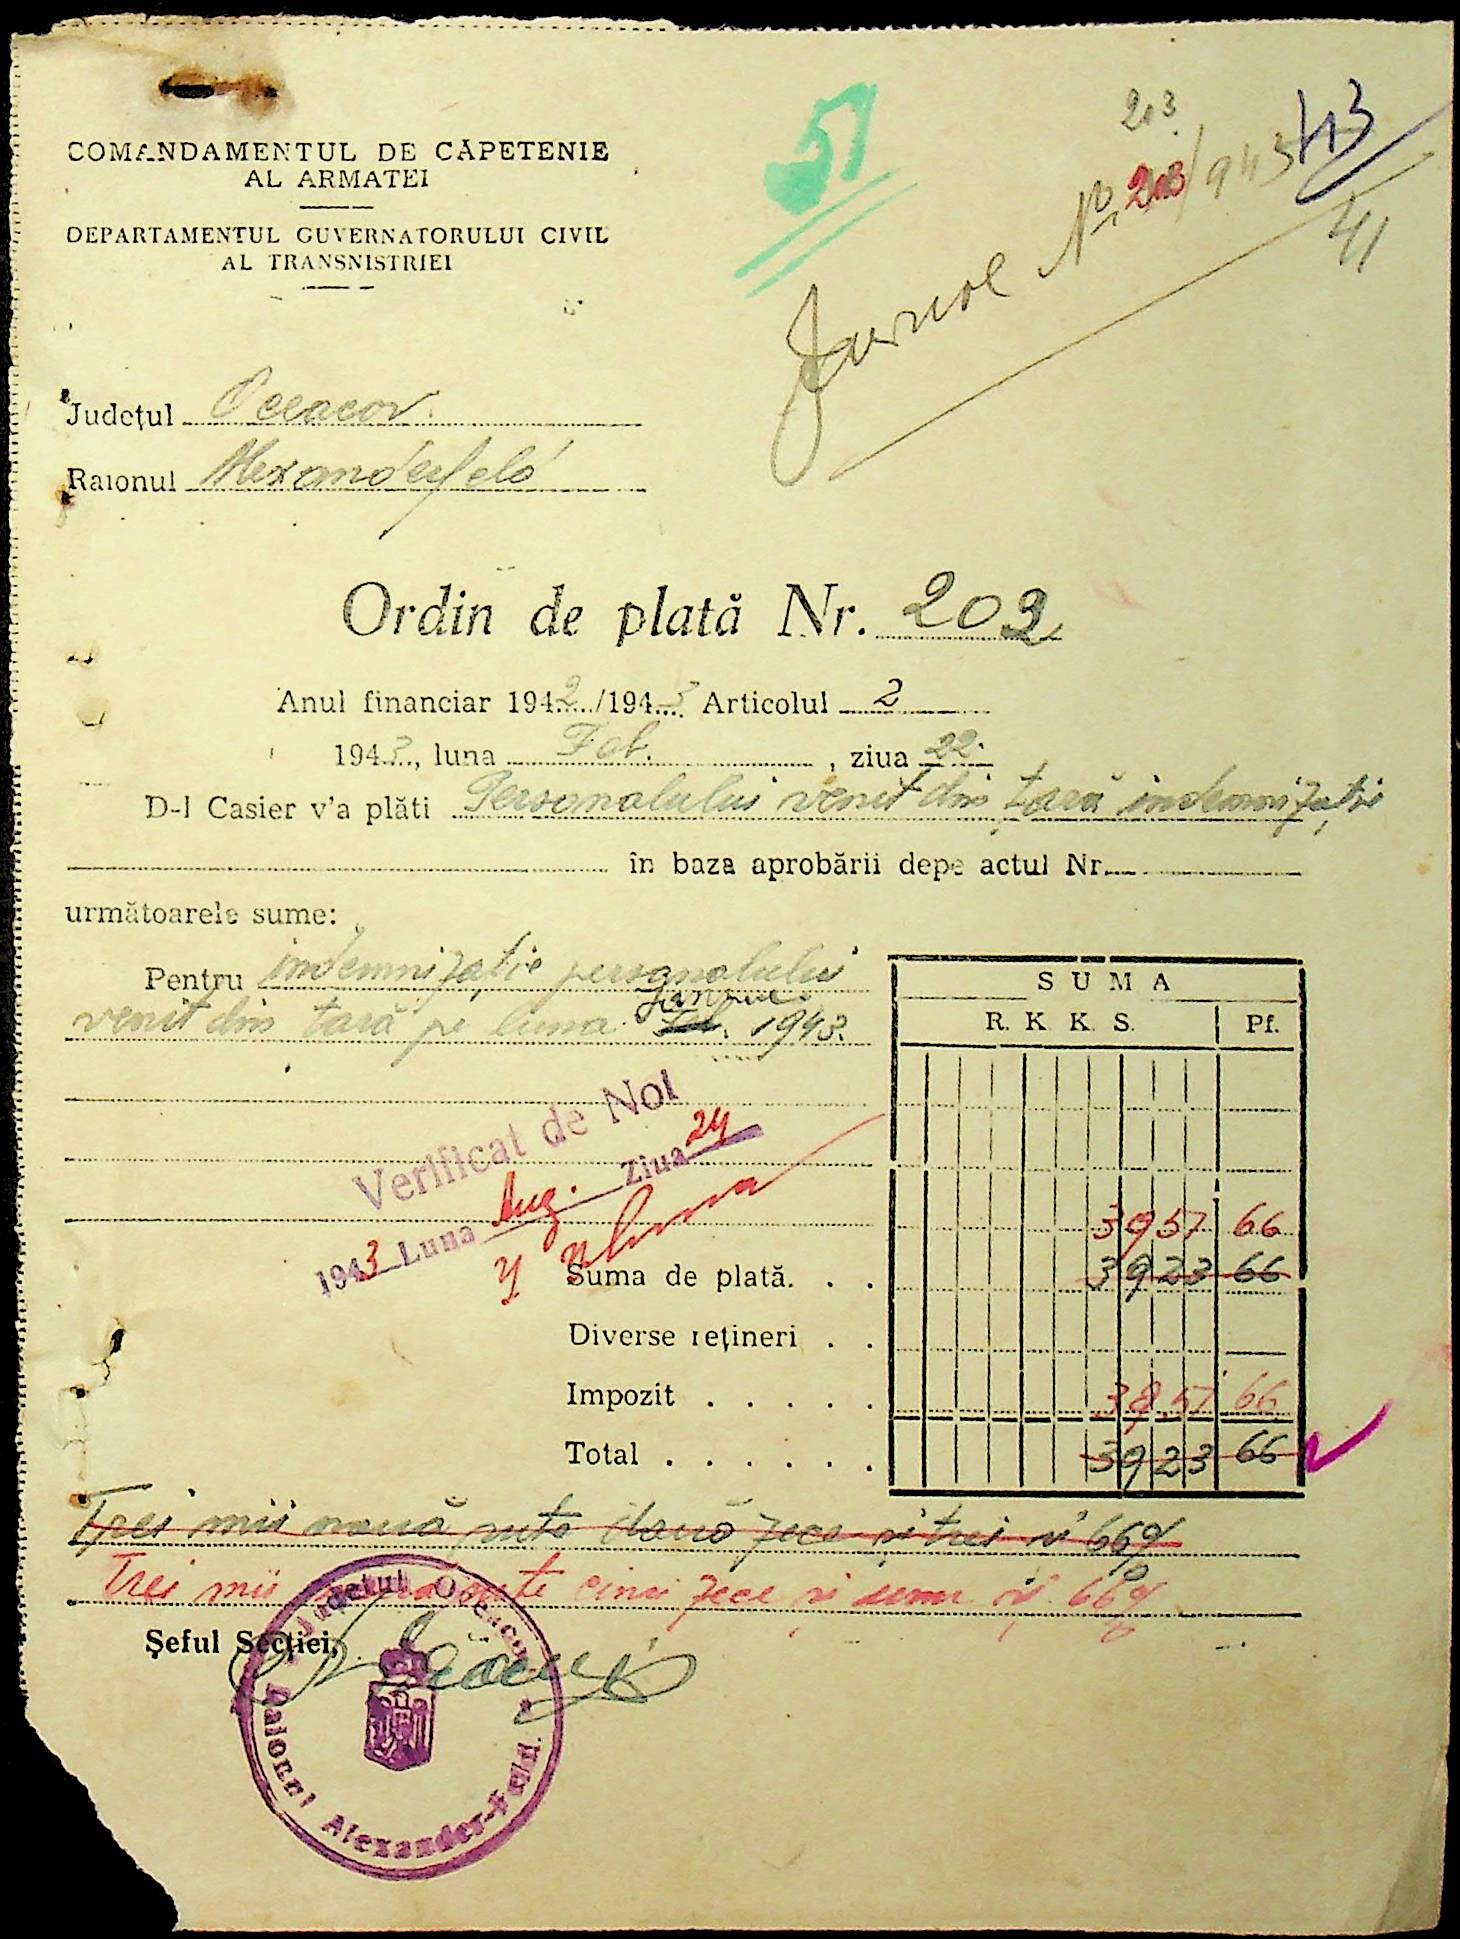 COMANDAMENTUL DE CĂPETENIE
AL ARMATEI
DEPARTAMENTUL GUVERNATORULUI CIVIL
AL TRANSNISTRIEI
51
203
Jurnal No. 203/943
113
41
Județul Oceacov.
Raionul Alexanderfeld
Ordin de plată Nr. 203
Anul financiar 1942/1943 Articolul 2
1943, luna Feb. , ziua 22.
D-l Casier v'a plăti Personalului venit din țară indemnizație
în baza aprobării depe actul Nr.
următoarele sume:
Pentru indemnizație personalului
venit din țară pe luna Feb. Ianuarie 1943.
SUMA
R. K. K. S. Pf.
Verificat de Noi
1943 Luna Aug. Ziua 24
3957 66
Suma de plată. . . 3923 66
Diverse rețineri . . —
Impozit . . . . . 3957 66
Total . . . . . . 3923 66
Trei mii nouă sute două zece și trei și 66%
Trei mii nouă sute cinci zece și și 66%
Șeful Secției,
Județul Oceacov
Raionul Alexander-Feld.